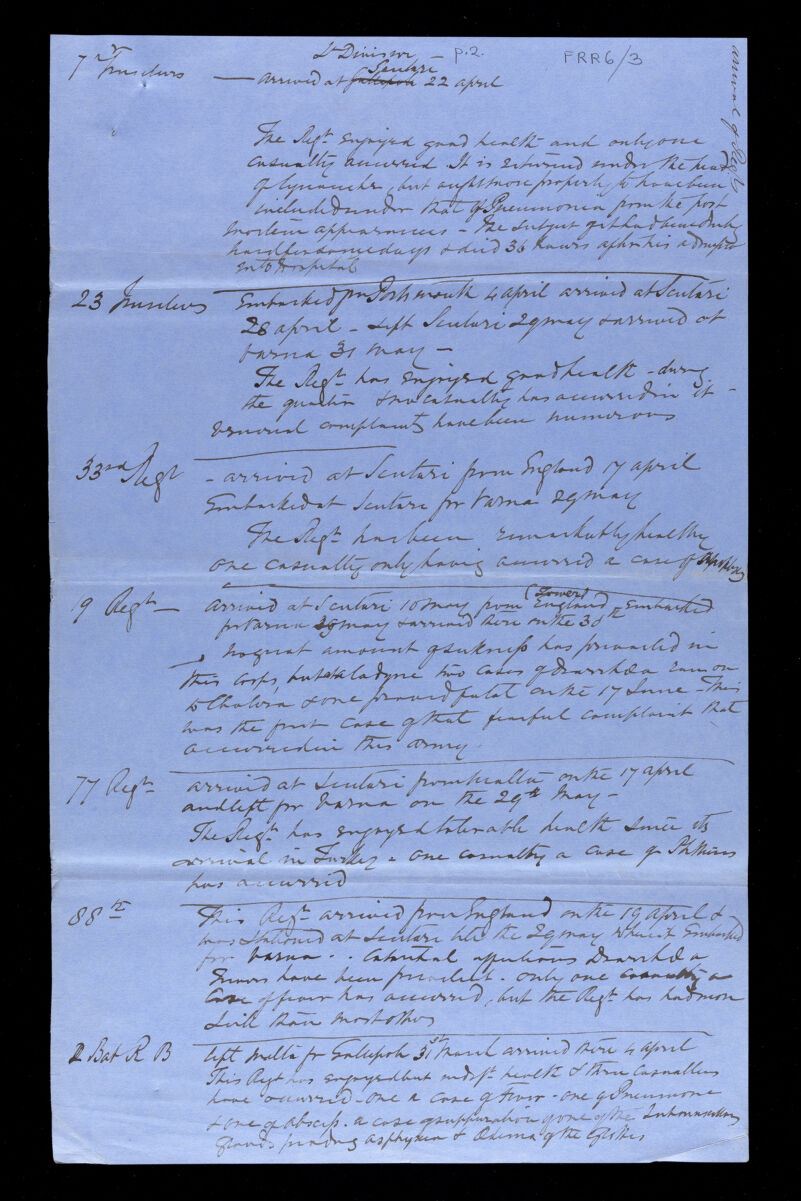 Lt Division — p.2. FRR6/3
7th Fusiliers — arrived at Gallipoli Scutari 22 april
arrival of Regts
The Regt enjoyed good health and only one
casualty occurred It is returned under the head
of , but ought more properly to have been
included under that of Pneumonia from the post
mortem appearances – The subject of it had been drunk
hard for some days & died 36 hours after his admission
into Hospital
23 Fusiliers Embarked from Portsmouth 4 april arrived at Scutari
28 april – Left Scutari 29 may & arrived at
Varna 31 may —
The Regt has enjoyed good health – during
the quarter & no casualty has occurred in it –
venereal complaints have been numerous
33rd Regt – arrived at Scutari from England 17 april
Embarked at Scutari for Varna 29 may
The Regt has been remarkably healthy
one casualty only having occurred a case of apoplexy
19 Regt — arrived at Scutari 10 may from (Tower) England Embarked
for Varna 29 may & arrived there on the 30th
No great amount of sickness has prevailed in
this corps, but two cases of diarrhœa ran on
to Cholera & one proved fatal on the 17 June – This
was the first case of that fearful complaint that
occurred in this army.
77 Regt arrived at Scutari from Malta on the 17 april
and left for Varna on the 29th May –
The Regt has enjoyed tolerable health since its
arrival in Turkey – one casualty a case of Phthisis
has occurred
88th This Regt arrived from England on the 19 april &
was stationed at Scutari till the 29 may when it Embarked
for Varna – . Catarrhal affections Diarrhœa
Fevers have been prevalent – only one casualty a
case of fever has occurred, but the Regt has had more
sick than most others
2 Bat R B left Malta for Gallipoli 31st March arrived there 4 april
This Regt has enjoyed but indift health & three casualties
have occurred – one a case of Fever – one of Pneumonia
& one of abscess. a case of suppuration of one of the
glands producing asphyxia & Œdema of the Glottis